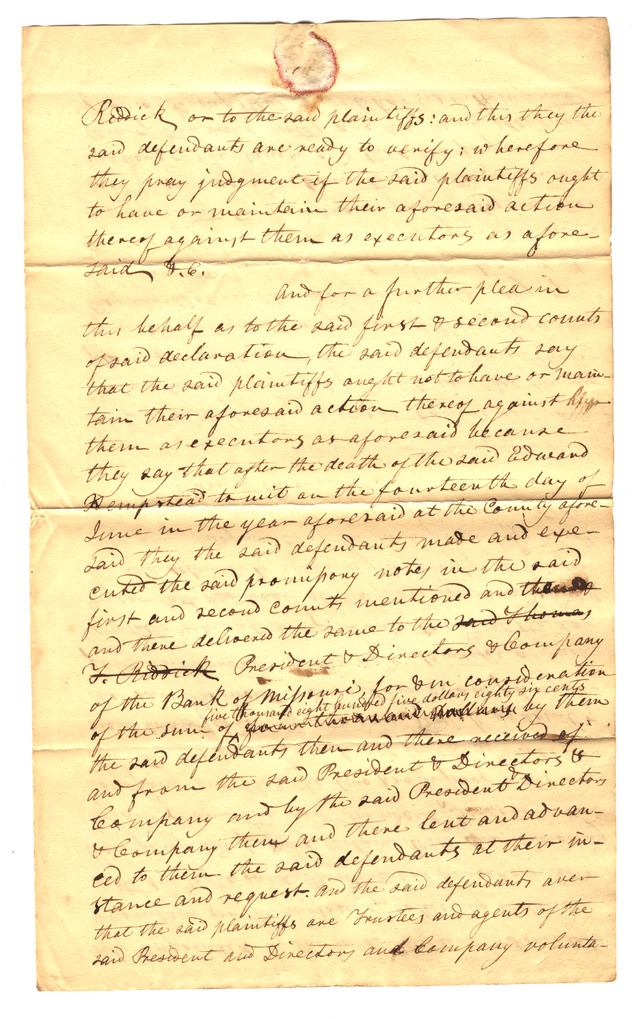 Riddick or to the said plaintiffs: and this they the
said defendants are ready to verify; wherefore
they pray judgment if the said plaintiffs ought
to have or maintain their aforesaid action
thereof against them as executors as afore-
said &.C.
And for a further plea in
this behalf as to the said first & second counts
of said declaration, the said defendants say
that the said plaintiffs ought not to have or main-
tain their aforesaid action thereof against
them as executors as aforesaid because
they say that after the death of the said Edward
Hempstead to wit on the fourteenth day of
June in the year aforesaid at the County afore-
said they the said defendants made and exe-
cuted the said promissory notes in the said
first and second counts mentioned and then
and there delivered the same to the said Thomas
F. Riddick President & Directors & Company
of the Bank of Missouri, for & in consideration
five thousand eight hundred five dollars eighty six cents
of the sum of thousand dollars by them
the said defendants then and there received of
and from the said President & Directors &
Company and by the said President & Directors
& Company then and there lent and advan-
ced to them the said defendants at their in-
stance and request. And the said defendants aver
that the said plaintiffs are Trustees and agents of the
said President and Directors and Company volunta-